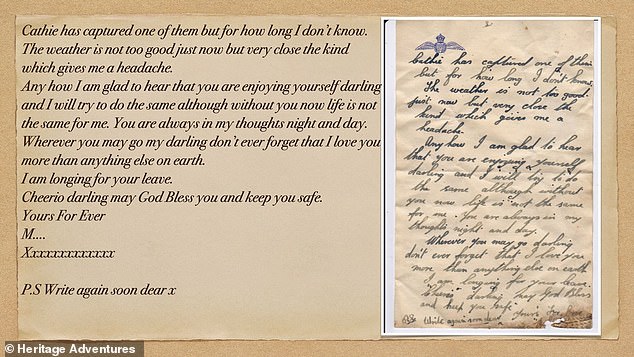 Cathie has captured one of them but for how long I don't know.
The weather is not too good just now but very close the kind
which gives me a headache.
Any how I am glad to hear that you are enjoying yourself darling
and I will try to do the same although without you now life is not
the same for me. You are always in my thoughts night and day.
Wherever you may go my darling don't ever forget that I love you
more than anything else on earth.
I am longing for your leave.
Cheerio darling may God Bless you and keep you safe.
Yours For Ever
M....
Xxxxxxxxxxxxxx
P.S Write again soon dear x
2
Cathie has captured one of them
but for how long I don't know.
The weather is not too good
just now but very close the
kind which gives me a
headache.
Any how I am glad to hear
that you are enjoying yourself
darling and I will try to do
the same although without
you now life is not the same
for me. You are always in my
thoughts night and day.
Wherever you may go darling
don't ever forget that I love you
more than anything else on earth
I am longing for your leave.
Cheerio darling may God Bless
and keep you safe
Yours For Ever
P.S. Write again soon dear
© Heritage Adventures